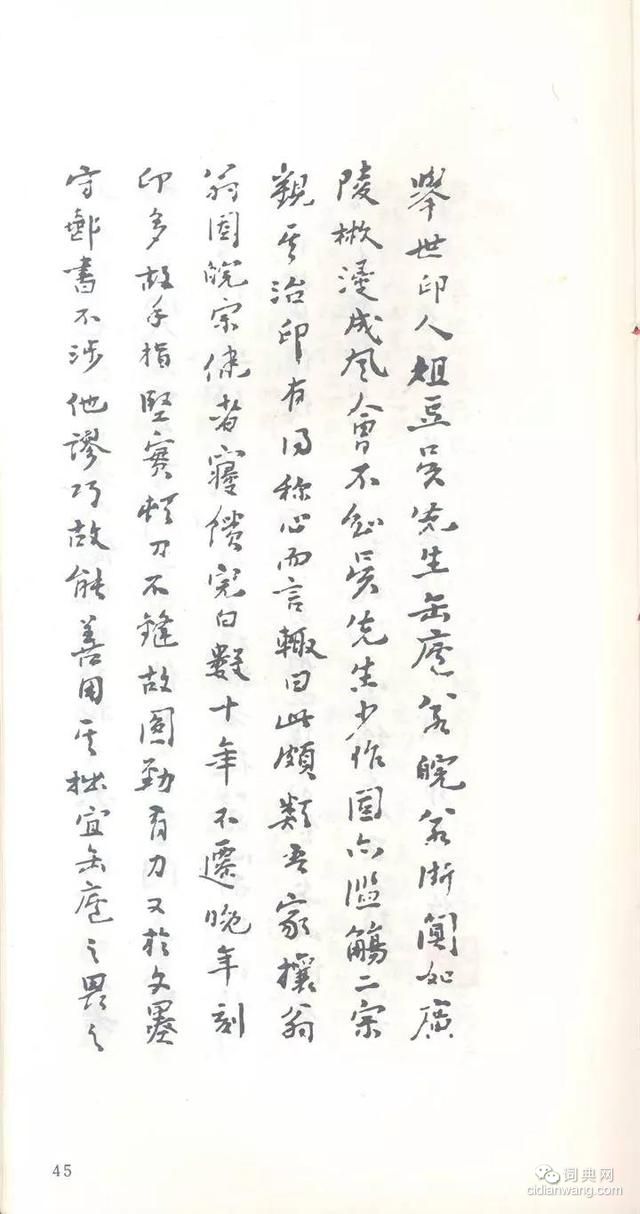 舉世印人俎豆吳先生缶廬若皖若浙闃如廣
陵楸漫成風會不知吳先生少作固亦濫觴二宗
觀其治印有得稱心而言輒曰此頗類吾家攘翁
翁固皖宗健者寢饋完白數十年不遷晚年刻
印多故手指堅實頓刀不鋒故圓勁有力又於文墨
守鄦書不涉他謬巧故能善用其拙宜缶廬之畏之
45
词典网
cidianwang.com